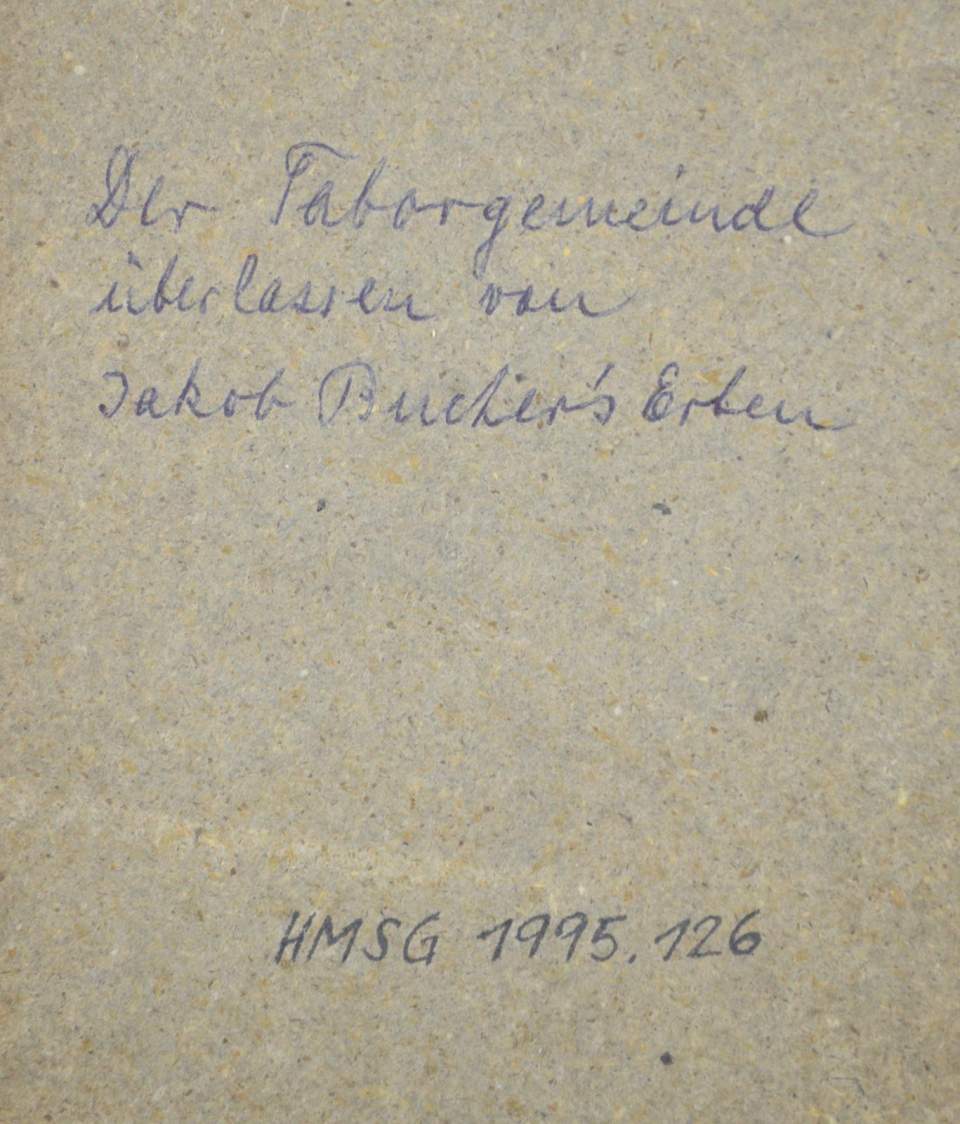 Der Taborgemeinde
überlassen von
Jakob Bucher's Erben
HMSG 1995.126